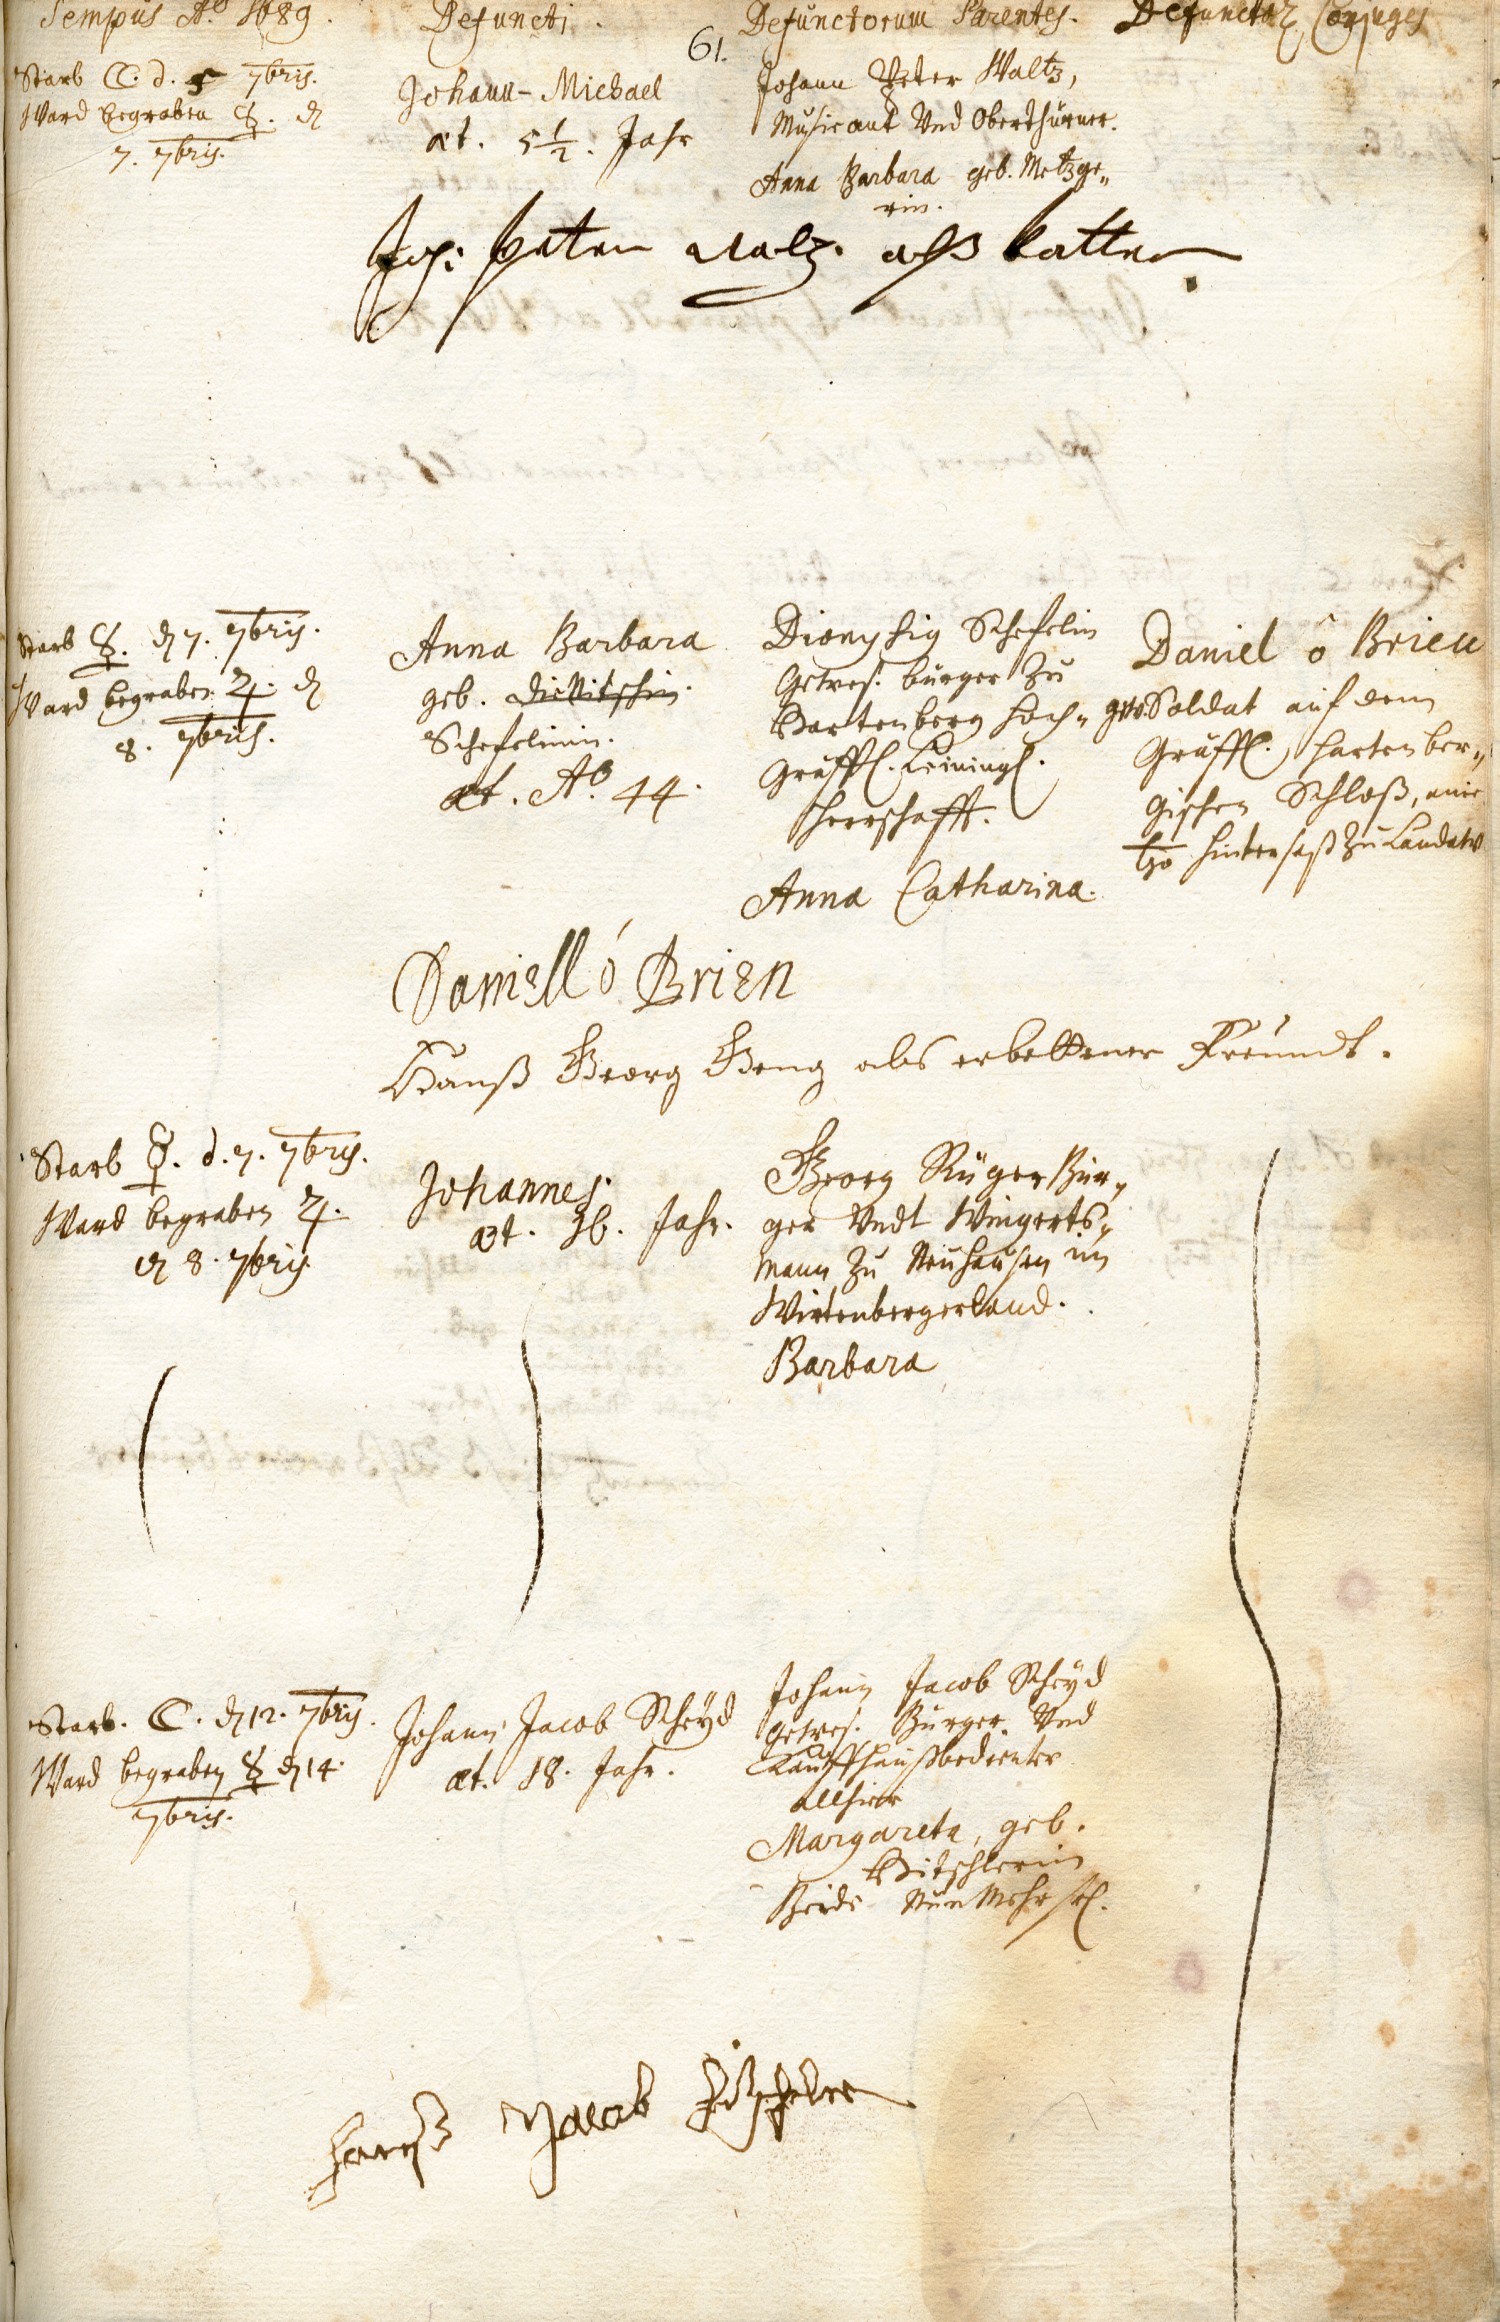 Tempus Aō. 1689. Defuncti. Defunctorum Parentes. Defunctor. Conjuges
61.
Starb ☾. d. 5 7bris.
Ward begraben ☿. d
7. 7bris.
Johann-Michael
æt. 5 1/2. Jahr
Johann Peter Waltz,
Musicant Vnd Oberthürner.
Anna Barbara geb. Metzge„
rin.
Joh: peter Walz. alß Vatter
Starb ☿. d 7. 7bris.
Ward begraben ♃. d
8. 7bris.
Anna Barbara
geb.
Schefelinin.
æt. Aō. 44.
Dionysig Schefelin
Gewes. bürger Zu
Hartenberg Hoch„
Gräffl. Leiningl.
Herrschafft.
Anna Catharina.
Daniel ô Brien
gew. Soldat auf dem
Gräffl. Hartenber„
gischen Schloß,
Hintersaß Zu Landaw
Daniell ó Brien
Hanß Georg Geng als erbettener Freundt.
Starb ☿. d. 7. 7bris.
Ward begraben ♃.
d 8. 7bris.
Johannes.
æt. 36. Jahr.
Georg Rüger Bür„
ger Vndt Wingerts„
Mann Zu Neuhausen im
Wirtenbergerland.
Barbara
Starb. ☾. d 12. 7bris.
Ward begraben ☿ d 14.
7bris.
Johann Jacob Scheÿd
æt. 18. Jahr.
Johann Jacob Scheÿd
gewes. Bürger Vnd
Kauffhaußbedienter
allhier
Margareta, geb.
Bitschlerin
Beide Nun Mehr sel.
Hanß Jacob